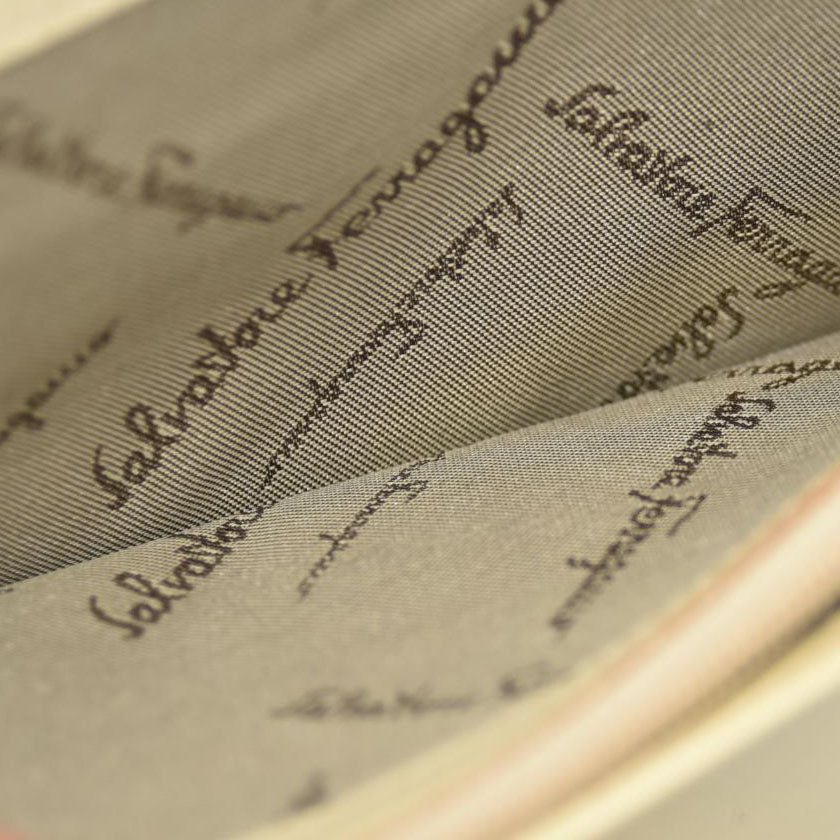 Salvatore Ferragamo
Salvatore Ferragamo
Salvatore Ferragamo
Salvatore Ferragamo
Salvatore
Salvatore
Salvatore Ferragamo